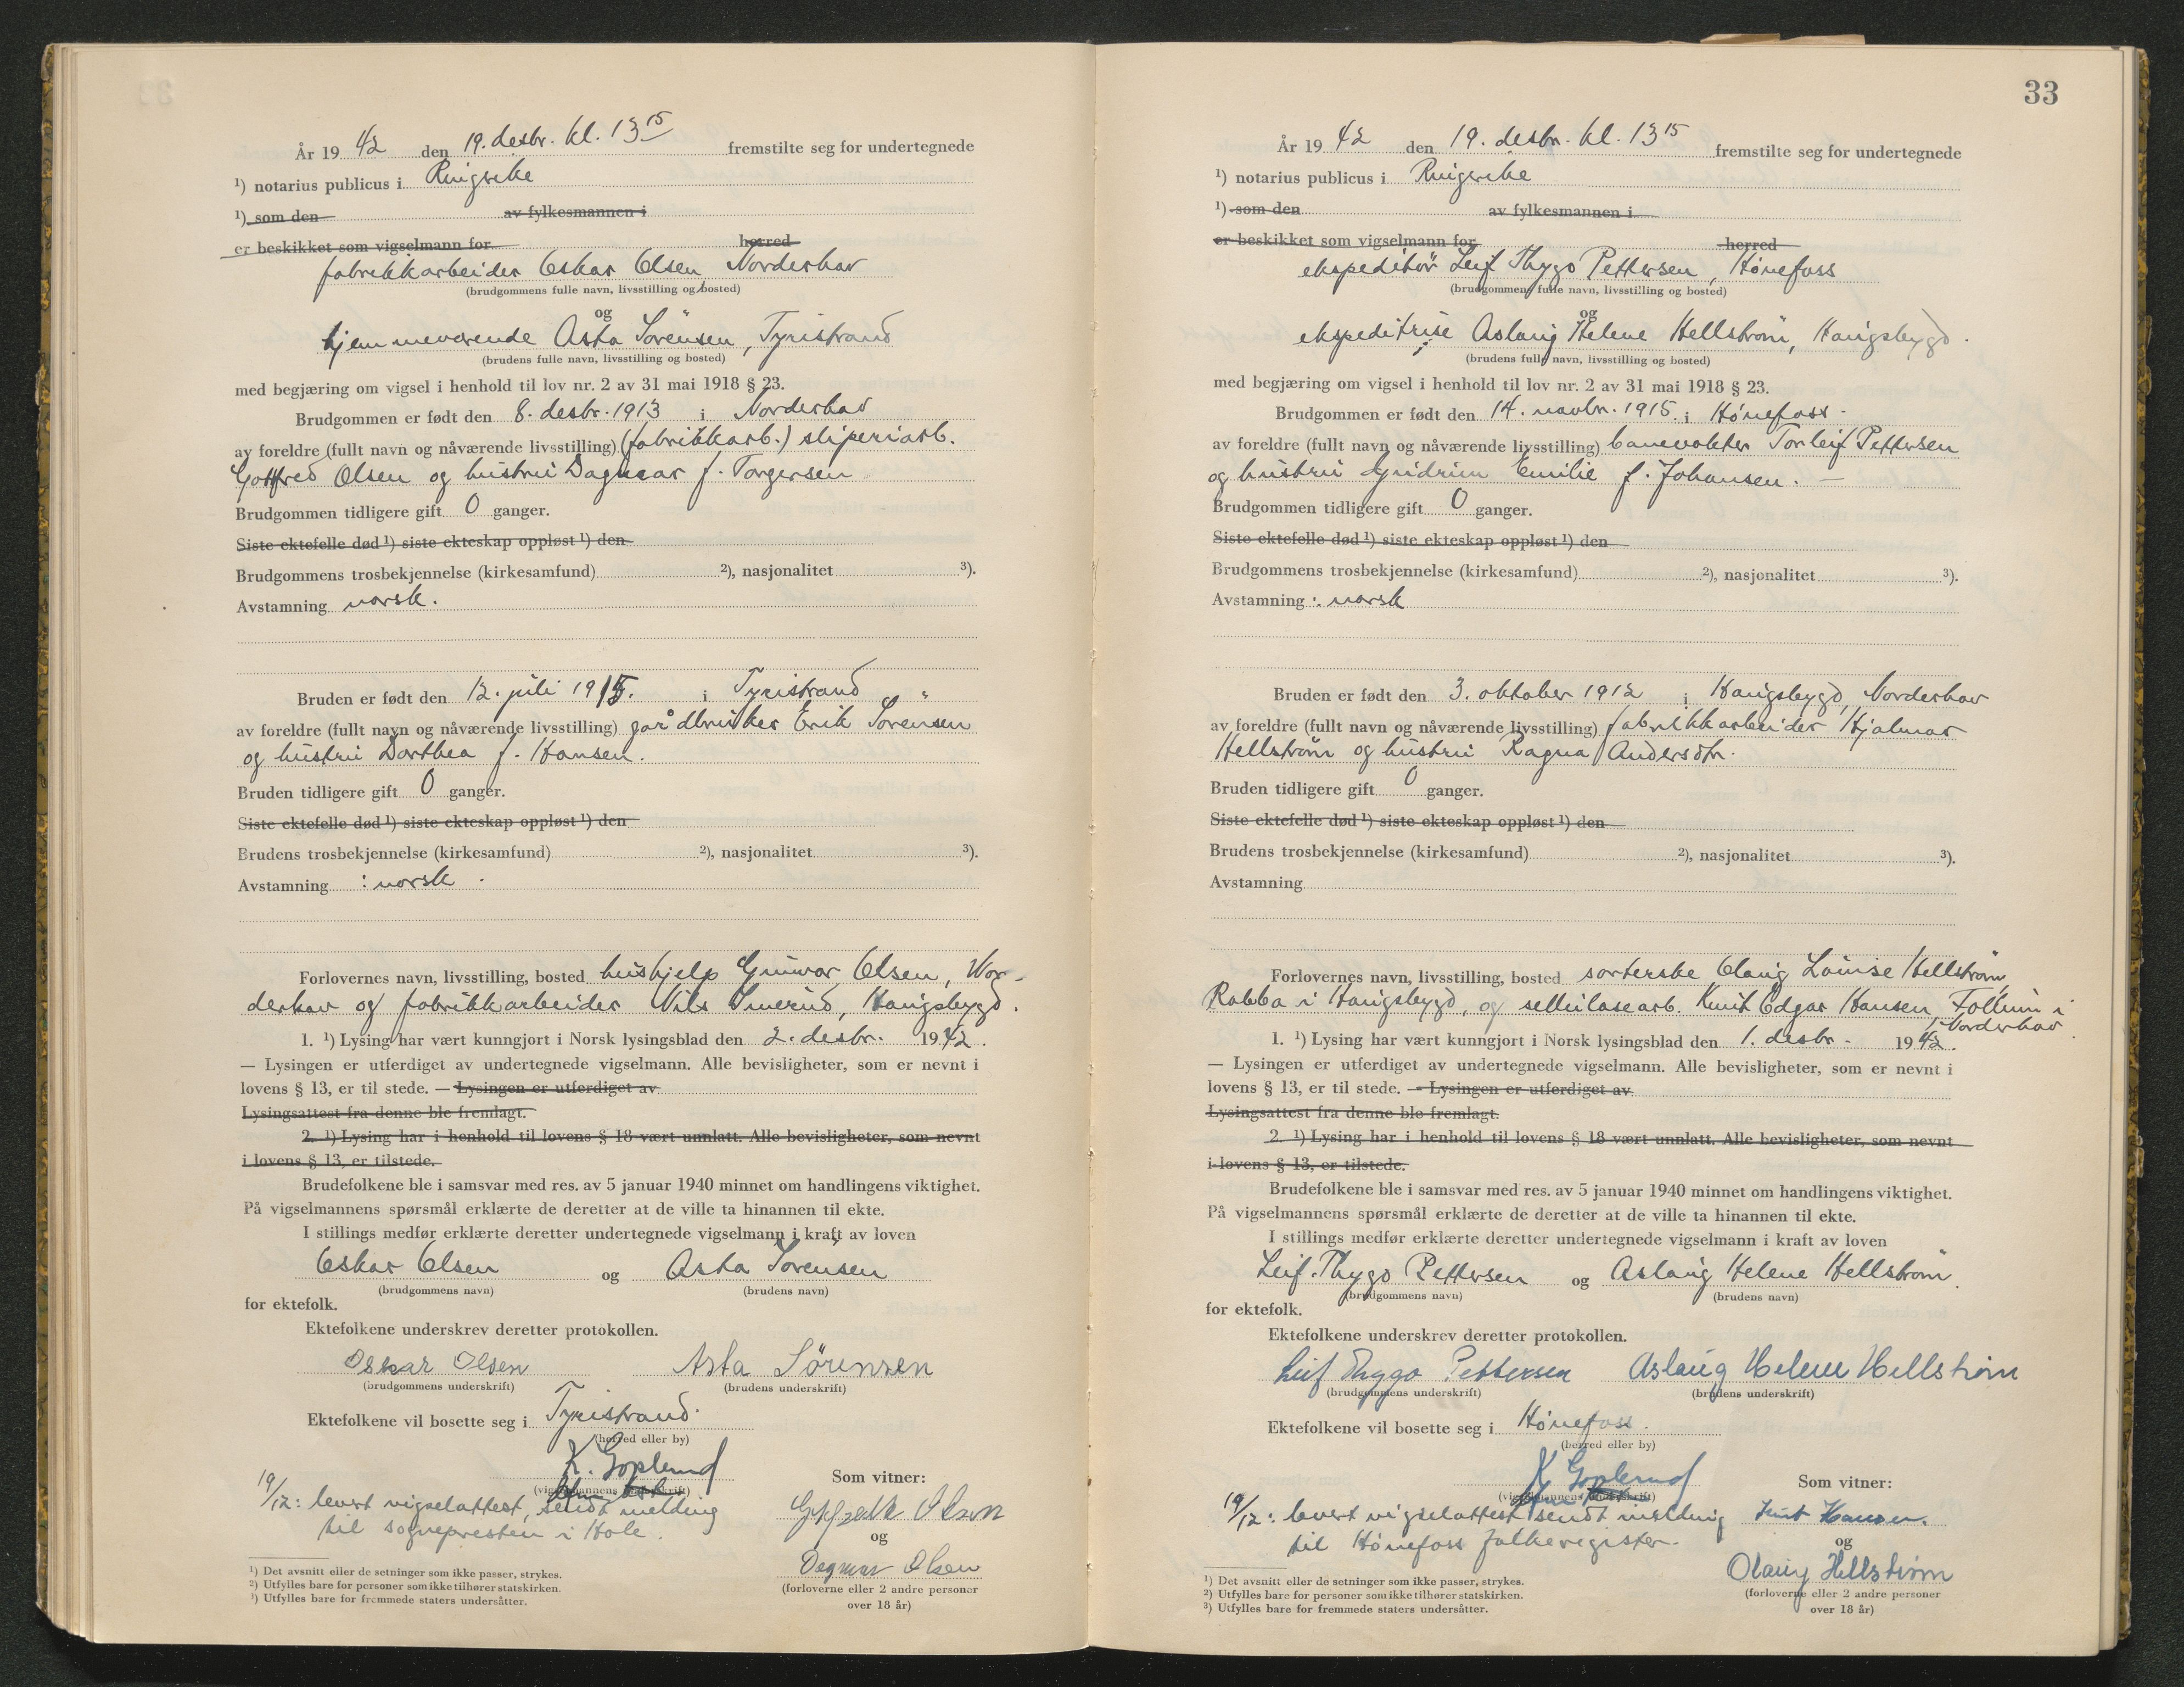 År 19 42 den 19. desbr. kl. 13 15 fremstilte seg for undertegnede
¹) notarius publicus i Ringerike
¹) som den av fylkesmannen i
er beskikket som vigselmann for herred
fabrikkarbeider Oskar Olsen Norderhov
(brudgommens fulle navn, livsstilling og bosted)
og
hjemmeværende Asta Sörensen, Tyristrand
(brudens fulle navn, livsstilling og bosted)
med begjæring om vigsel i henhold til lov nr. 2 av 31 mai 1918 § 23.
Brudgommen er født den 8. desbr. 1913 i Norderhov
av foreldre (fullt navn og nåværende livsstilling) (fabrikkarb.) sliperiarb.
Gottfred Olsen og hustru Dagmar f. Torgersen
Brudgommen tidligere gift 0 ganger.
Siste ektefelle død ¹) siste ekteskap oppløst ¹) den
Brudgommens trosbekjennelse (kirkesamfund) ²), nasjonalitet ³).
Avstamning norsk.
Bruden er født den 12. juli 1915. i Tyristrand
av foreldre (fullt navn og nåværende livsstilling) gårdbruker Erik Sörensen
og hustru Dorthea f. Hansen.
Bruden tidligere gift 0 ganger.
Siste ektefelle død ¹) siste ekteskap oppløst ¹) den
Brudens trosbekjennelse (kirkesamfund) ²), nasjonalitet ³).
Avstamning : norsk.
Forlovernes navn, livsstilling, bosted hushjelp Gunvor Olsen, Nor-
derhov og fabrikkarbeider Nils Smerud, Haugsbygd.
1. ¹) Lysing har vært kunngjort i Norsk lysingsblad den 2. desbr. 1942.
— Lysingen er utferdiget av undertegnede vigselmann. Alle bevisligheter, som er nevnt i
lovens § 13, er til stede. — Lysingen er utferdiget av
Lysingsattest fra denne ble fremlagt.
2. ¹) Lysing har i henhold til lovens § 18 vært unnlatt. Alle bevisligheter, som nevnt
i lovens § 13, er tilstede.
Brudefolkene ble i samsvar med res. av 5 januar 1940 minnet om handlingens viktighet.
På vigselmannens spørsmål erklærte de deretter at de ville ta hinannen til ekte.
I stillings medfør erklærte deretter undertegnede vigselmann i kraft av loven
Oskar Olsen og Asta Sörensen
(brudgommens navn) (brudens navn)
for ektefolk.
Ektefolkene underskrev deretter protokollen.
Oskar Olsen Asta Sörensen
(brudgommens underskrift) (brudens underskrift)
Ektefolkene vil bosette seg i Tyristrand.
(herred eller by)
K. Goplerud
(vigselmannens underskrift) Som vitner:
19/12: levert vigselattest, sendt melding
til sognepresten i Hole.
Olsen
og
Dagmar Olsen
(forloverne eller 2 andre personer
over 18 år)
¹) Det avsnitt eller de setninger som ikke passer, strykes.
²) Utfylles bare for personer som ikke tilhører statskirken.
³) Utfylles bare for fremmede staters undersåtter.
33
År 19 42 den 19. desbr. kl. 13 15 fremstilte seg for undertegnede
¹) notarius publicus i Ringerike
¹) som den av fylkesmannen i
er beskikket som vigselmann for herred
ekspeditör Leif Thygo Pettersen, Hönefoss
(brudgommens fulle navn, livsstilling og bosted)
og
ekspeditrise Aslaug Helene Hellström, Haugsbygd.
(brudens fulle navn, livsstilling og bosted)
med begjæring om vigsel i henhold til lov nr. 2 av 31 mai 1918 § 23.
Brudgommen er født den 14. novbr. 1915. i Hönefoss.
av foreldre (fullt navn og nåværende livsstilling) banevokter Torleif Pettersen
og hustru Gudrun Emilie f. Johansen. —
Brudgommen tidligere gift 0 ganger.
Siste ektefelle død ¹) siste ekteskap oppløst ¹) den
Brudgommens trosbekjennelse (kirkesamfund) ²), nasjonalitet ³).
Avstamning : norsk
Bruden er født den 3. oktober 1912 i Haugsbygd, Norderhov
av foreldre (fullt navn og nåværende livsstilling) fabrikkarbeider Hjalmar
Hellström og hustru Ragna Andersdtr.
Bruden tidligere gift 0 ganger.
Siste ektefelle død ¹) siste ekteskap oppløst ¹) den
Brudens trosbekjennelse (kirkesamfund) ²), nasjonalitet ³).
Avstamning
Forlovernes navn, livsstilling, bosted sorterske Olaug Louise Hellström,
Rabba i Haugsbygd, og cellulosearb. Knut Edgar Hansen, Follum i
Norderhov.
1. ¹) Lysing har vært kunngjort i Norsk lysingsblad den 1. desbr. 1942.
— Lysingen er utferdiget av undertegnede vigselmann. Alle bevisligheter, som er nevnt i
lovens § 13, er til stede. — Lysingen er utferdiget av
Lysingsattest fra denne ble fremlagt.
2. ¹) Lysing har i henhold til lovens § 18 vært unnlatt. Alle bevisligheter, som nevnt
i lovens § 13, er tilstede.
Brudefolkene ble i samsvar med res. av 5 januar 1940 minnet om handlingens viktighet.
På vigselmannens spørsmål erklærte de deretter at de ville ta hinannen til ekte.
I stillings medfør erklærte deretter undertegnede vigselmann i kraft av loven
Leif Thygo Pettersen og Aslaug Helene Hellström.
(brudgommens navn) (brudens navn)
for ektefolk.
Ektefolkene underskrev deretter protokollen.
Leif Thygo Pettersen Aslaug Helene Hellstrøm
(brudgommens underskrift) (brudens underskrift)
Ektefolkene vil bosette seg i Hönefoss.
(herred eller by)
K. Goplerud
(vigselmannens underskrift) Som vitner:
19/12: levert vigselattest, sendt melding
til Hönefoss folkeregister.
Knut Hansen.
og
Olaug Hellstrøm
(forloverne eller 2 andre personer
over 18 år)
¹) Det avsnitt eller de setninger som ikke passer, strykes.
²) Utfylles bare for personer som ikke tilhører statskirken.
³) Utfylles bare for fremmede staters undersåtter.